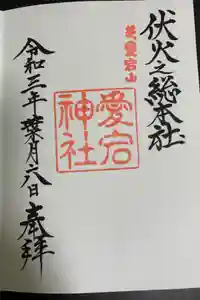 伏火之総本社
芝愛宕山
愛宕
神社
令和三年葉月六日奉拝